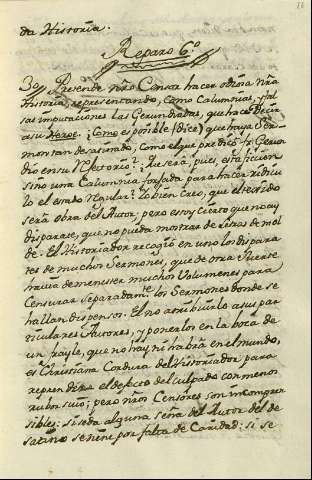 da Historia.
Reparo 6.º
30. Pretende nr̃o Censor hacer odiosa nr̃a
Historia, representando, como Calumnias, y fal
sas imputaciones las Gerundiadas, que hace decir
a su Heroe. ¿Como es posible (dice) que haya Ser-
mon tan desatinado, como el que predicó Fr. Gerun
dio en su Refectorio? ¿Que será, pues, esta ficcion
sino una Calumnia forjada para hacer ridicu
lo el estado Regular? Yo bien creo, que el texido
será obra del Autor; pero estoy cierto que no ay
disparate, que no pueda mostrar de letras de mol
de. El Historiador recogió en uno los dispara
tes de muchos Sermones, que de otra suerte
havia de menester muchos Volumenes para
Censurar separadam.te los Sermones donde se
hallan dispersos. El no atribuirlo a sus par
ticulares Autores, y ponerlos en la boca de
un frayle, que no hay ni habrá en el mundo,
es Christiana Cordura del Historiador para
reprender el defecto del culpado con menos
rubor suio; pero nr̃os Censores son incompren
sibles: si se da alguna seña del Autor del de
satino se riñe por falta de Caridad: si se